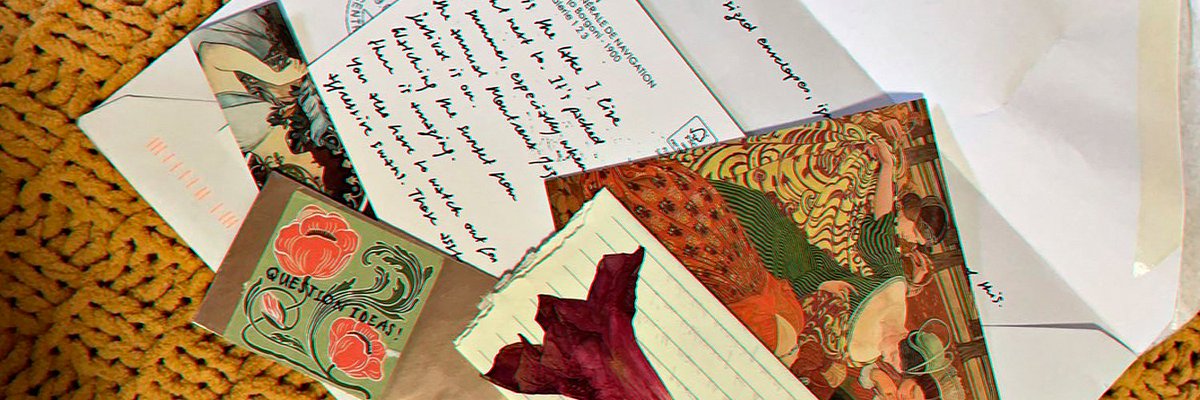 is the lake I live
next to. It's packed
summer, especially when
the annual Montreux Jazz
festival is on.
Watching the sunset from
there is amazing.
You also have to watch out for
aggressive swans. Those
NÉRALE DE NAVIGATION
Borgoni - 1900
123
sized envelopes,
this.
QUESTION IDEAS!